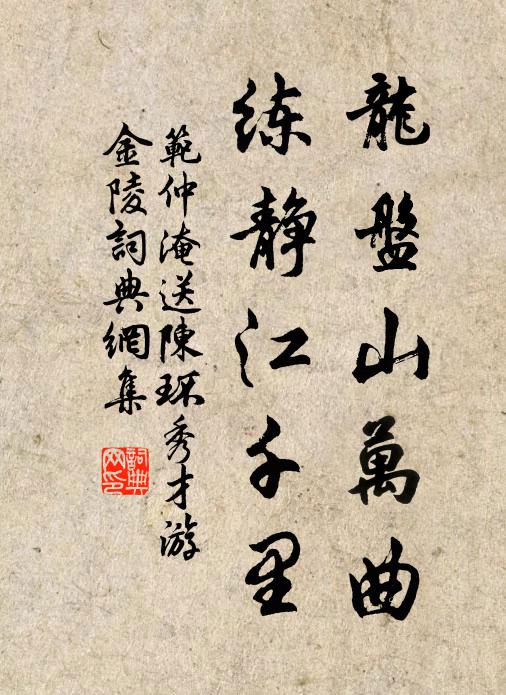 龍盤山萬曲
练静江千里
範仲淹送陳琛秀才游
金陵詞典網集
詞典网印